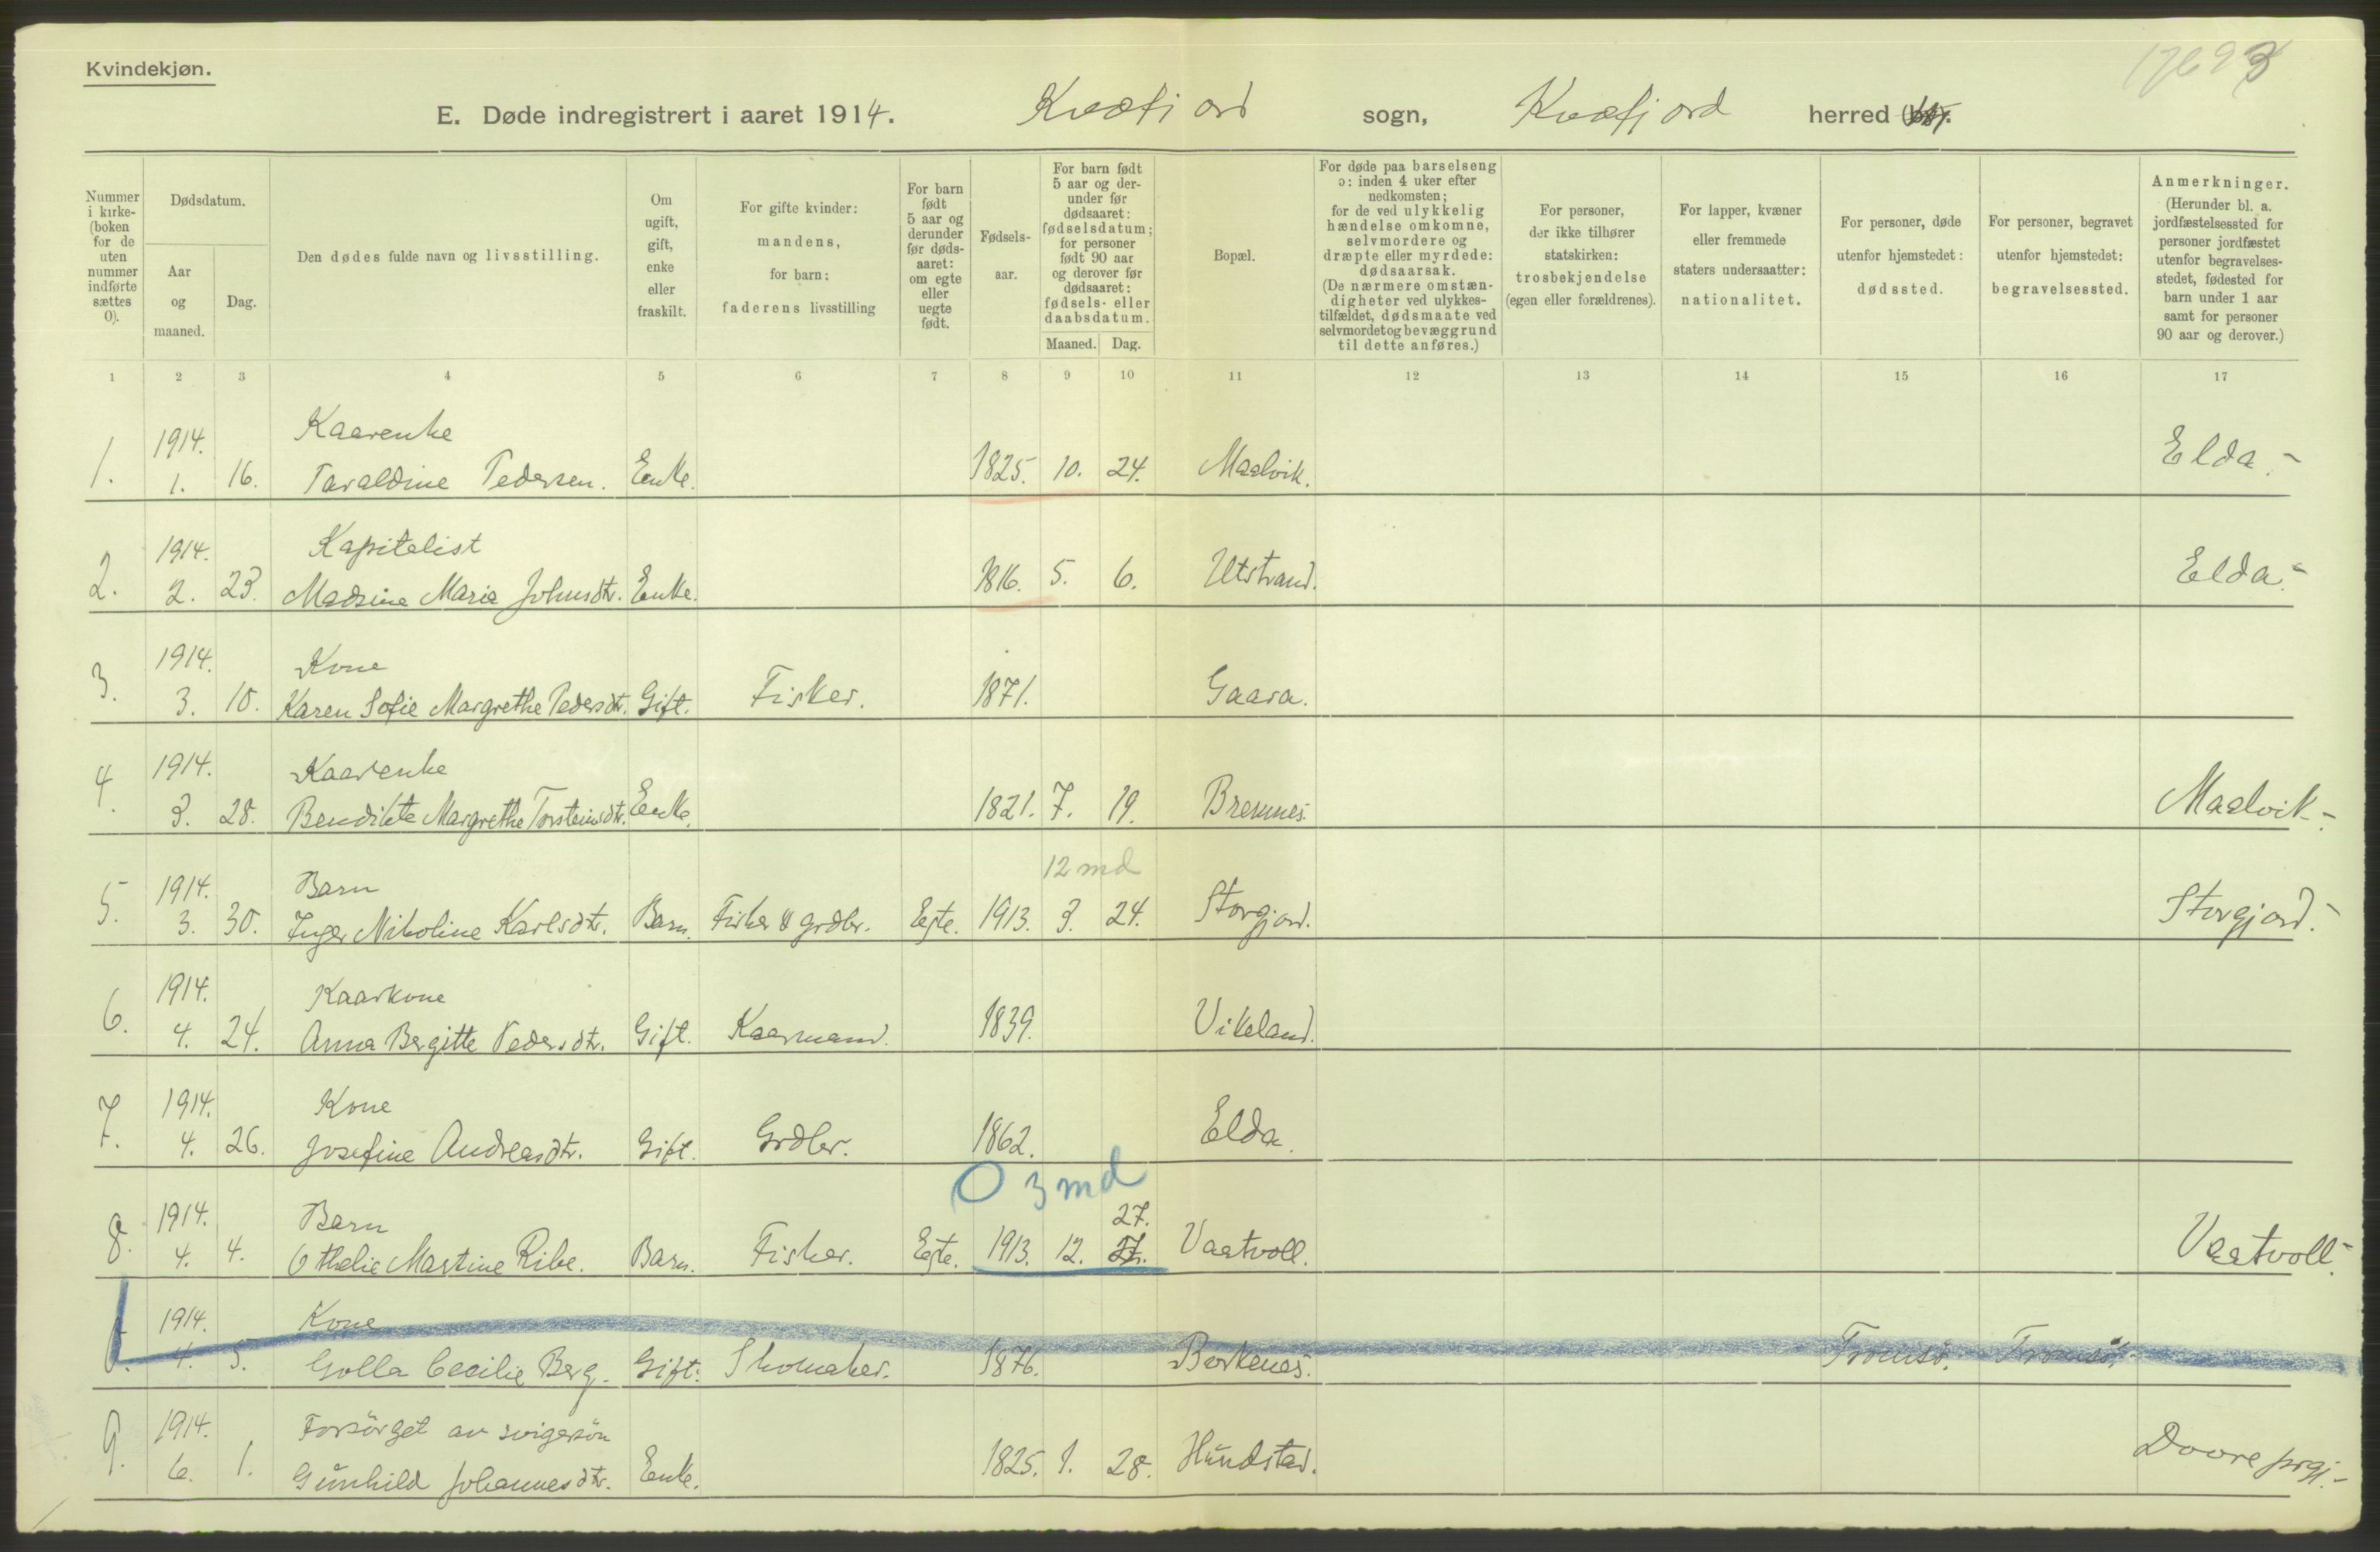 Kvindekjøn.
E. Døde indregistrert i aaret 1914. Kvæfjord sogn, Kvæfjord herred
Nummer i kirke-(boken for de uten nummer indførte sættes 0).
Dødsdatum.
Aar og maaned.
Dag.
Den dødes fulde navn og livsstilling.
Om ugift, gift, enke eller fraskilt.
For gifte kvinder: mandens, for barn: faderens livsstilling
For barn født 5 aar og derunder før døds-aaret: om egte eller uegte født.
Fødsels-aar.
For barn født 5 aar og der-under før dødsaaret: fødselsdatum; for personer født 90 aar og derover før dødsaaret: fødsels- eller daabsdatum.
Maaned. Dag.
Bopæl.
For døde paa barselseng ɔ: inden 4 uker efter nedkomsten; for de ved ulykkelig hændelse omkomne, selvmordere og dræpte eller myrdede: dødsaarsak. (De nærmere omstæn-digheter ved ulykkes-tilfældet, dødsmaate ved selvmordet og bevæggrund til dette anføres.)
For personer, der ikke tilhører statskirken: trosbekjendelse (egen eller forældrenes).
For lapper, kvæner eller fremmede staters undersaatter: nationalitet.
For personer, døde utenfor hjemstedet: dødssted.
For personer, begravet utenfor hjemstedet: begravelsessted.
Anmerkninger. (Herunder bl. a. jordfæstelsessted for personer jordfæstet utenfor begravelses-stedet, fødested for barn under 1 aar samt for personer 90 aar og derover.)
1 2 3 4 5 6 7 8 9 10 11 12 13 14 15 16 17
1914. Kaarenke
1. 1. 16. Taraldine Pedersen. Enke. 1825. 10. 24. Maelvik. Elda.-
1914. Kapitalist
2. 2. 23. Madsine Marie Johnsdtr. Enke. 1816. 5. 6. Utstrand. Elda.-
1914. Kone
3. 3. 10. Karen Sofie Margrethe Pedersdtr. Gift. Fisker. 1871. Gaara.
1914. Kaarenke
4. 3. 28. Bendikte Margrethe Torsteinsdtr. Enke. 1821. 7. 19. Bremnes. Maelvik.-
1914. Barn 12 md
5. 3. 30. Inger Nikoline Karlsdtr. Barn. Fisker & grdbr. Egte. 1913. 3. 24. Storgjord. Storgjord.-
1914. Kaarkone
6. 4. 24. Anna Bergitte Pedersdtr. Gift. Kaarmand. 1839. Vikeland.
1914. Kone
7. 4. 26. Josefine Andreasdtr. Gift. Grdbr. 1862. Elda.
0 3 md
1914. Barn 27.
8. 4. 4. Othelie Martine Ribe. Barn. Fisker. Egte. 1913. 12. Vaatvoll. Vaatvoll.-
1914. Kone
4. 5. Golla Cecilie Berg. Gift. Skomaker. 1876. Borkenes. Tromsö. Tromsö.-
1914. Forsörget av svigersön
9. 6. 1. Gunhild Johannesdtr. Enke. 1825. 1. 28. Hundstad. Dovre prgj.-